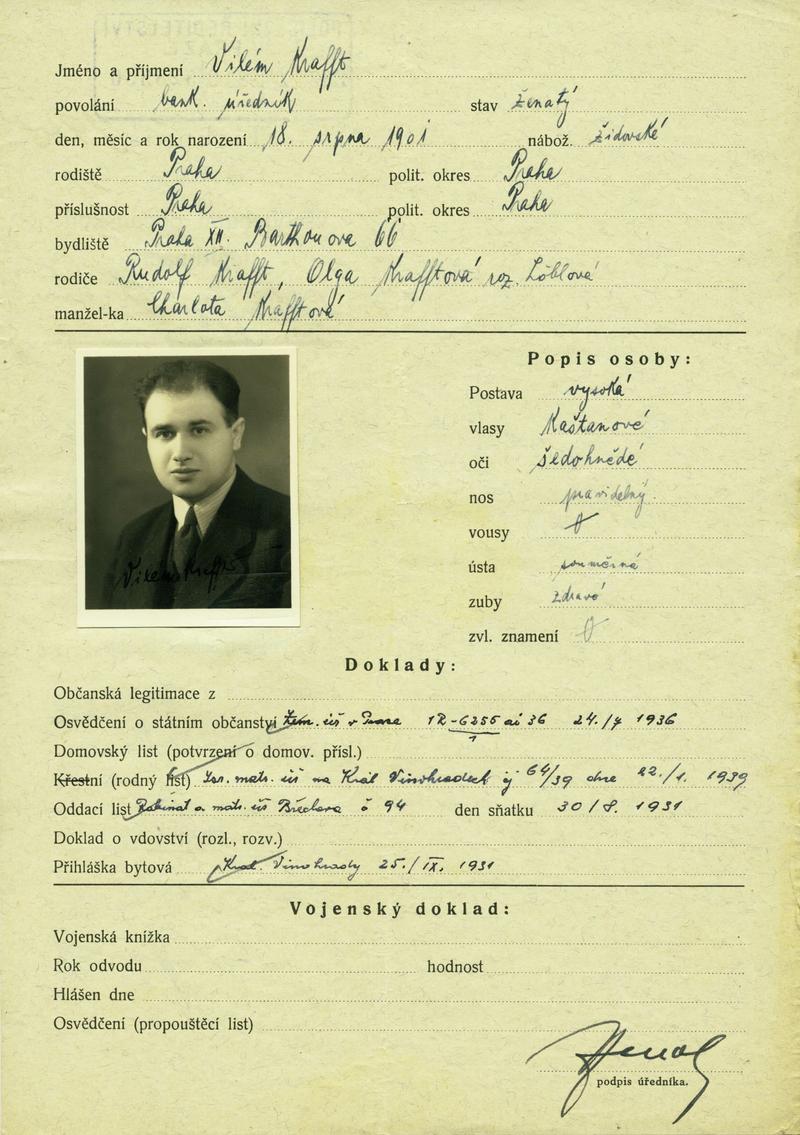 Jméno a příjmení Vilém Krafft
povolání bank. úředník stav ženatý
den, měsíc a rok narození 18. srpna 1901 nábož. židovské
rodiště Praha polit. okres Praha
příslušnost Praha polit. okres Praha
bydliště Praha XII. Barthouova 66
rodiče Rudolf Krafft, Olga Krafftová roz. Löblová
manžel-ka Charlota Krafftová
Popis osoby:
Postava vysoká
vlasy Kaštanové
oči šedohnědé
nos pravidelný
vousy
ústa souměrná
zuby zdravé
zvl. znamení
Vilém Krafft
Doklady:
Občanská legitimace z
Osvědčení o státním občanství Zem. úř v Praze 12-6255 ai 36 24./4 1936
Domovský list (potvrzení o domov. přísl.)
Křestní (rodný list) Isr. matr. úř na Král Vinohradech čj 64/39 dne 22./1. 1939
Oddací list Rabinát a matr. úř Břeclava č 94 den sňatku 30/8. 1931
Doklad o vdovství (rozl., rozv.)
Přihláška bytová Král. Vinohrady 25./IX. 1931
Vojenský doklad:
Vojenská knížka
Rok odvodu hodnost
Hlášen dne
Osvědčení (propouštěcí list)
podpis úředníka.